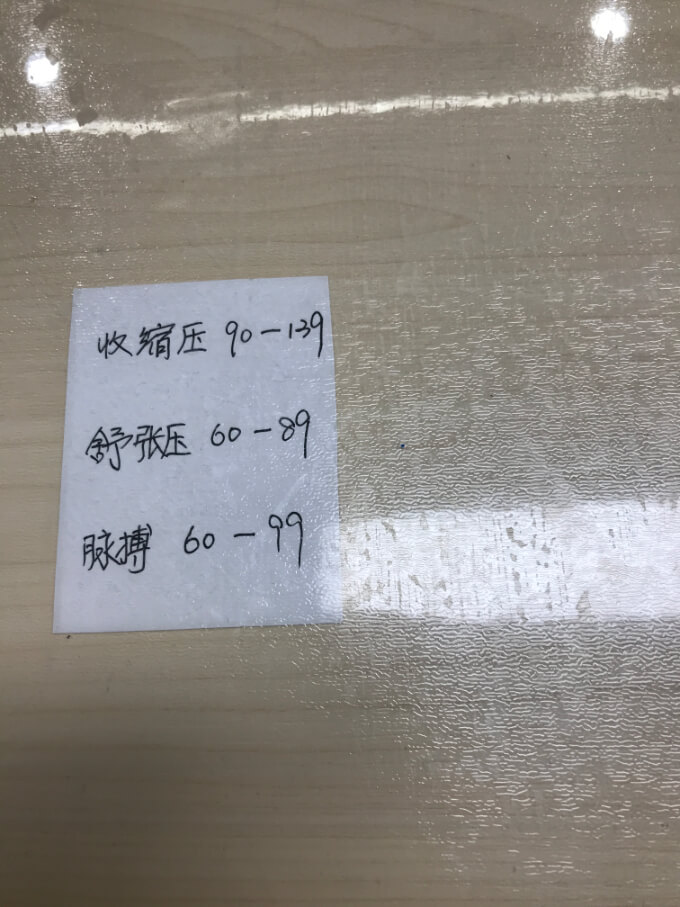 收缩压 90-139
舒张压 60-89
脉搏 60-99